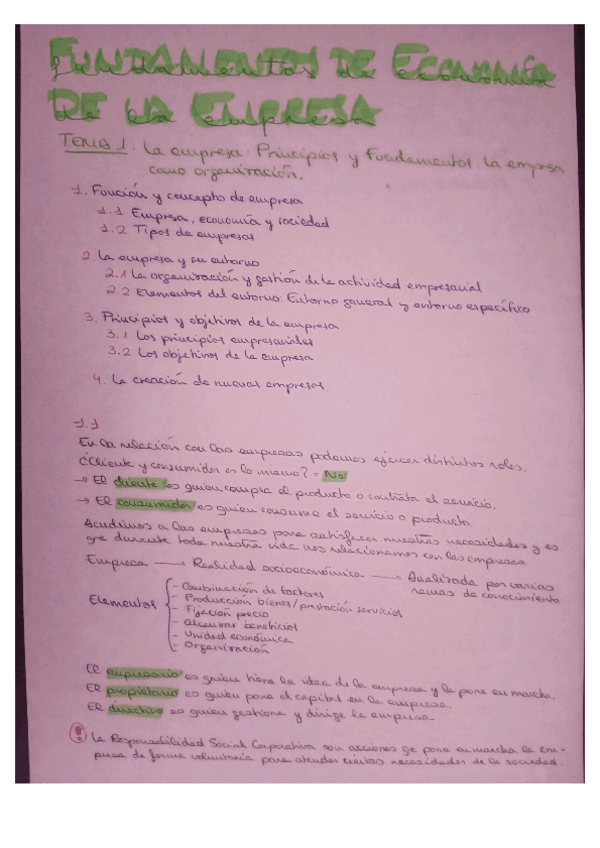 Fundamentos de Economía
de la Empresa
TEMA 1: La empresa: Principios y Fundamentos. La empresa
como organización.
1. Función y concepto de empresa
1.1 Empresa, economía y sociedad
1.2 Tipos de empresas
2. La empresa y su entorno
2.1 La organización y gestión de la actividad empresarial
2.2 Elementos del entorno: Entorno general y entorno específico
3. Principios y objetivos de la empresa
3.1 Los principios empresariales
3.2 Los objetivos de la empresa
4. La creación de nuevas empresas
1.1
En la relación con las empresas podemos ejercer distintos roles.
¿Cliente y consumidor es lo mismo? = No
→ El cliente es quien compra el producto o contrata el servicio.
→ El consumidor es quien consume el servicio o producto.
Acudimos a las empresas para satisfacer nuestras necesidades y es
que durante toda nuestra vida nos relacionamos con las empresas.
Empresa → Realidad socioeconómica → Analizada por varias
ramas de conocimiento
Elementos
- Combinación de factores
- Producción bienes/prestación servicios
- Fijación precio
- Alcanzar beneficios
- Unidad económica
- Organización
El empresario es quien tiene la idea de la empresa y la pone en marcha.
El propietario es quien pone el capital en la empresa.
El directivo es quien gestiona y dirige la empresa.
! La Responsabilidad Social Corporativa son acciones qe pone en marcha la em-
presa de forma voluntaria para atender ciertas necesidades de la sociedad.